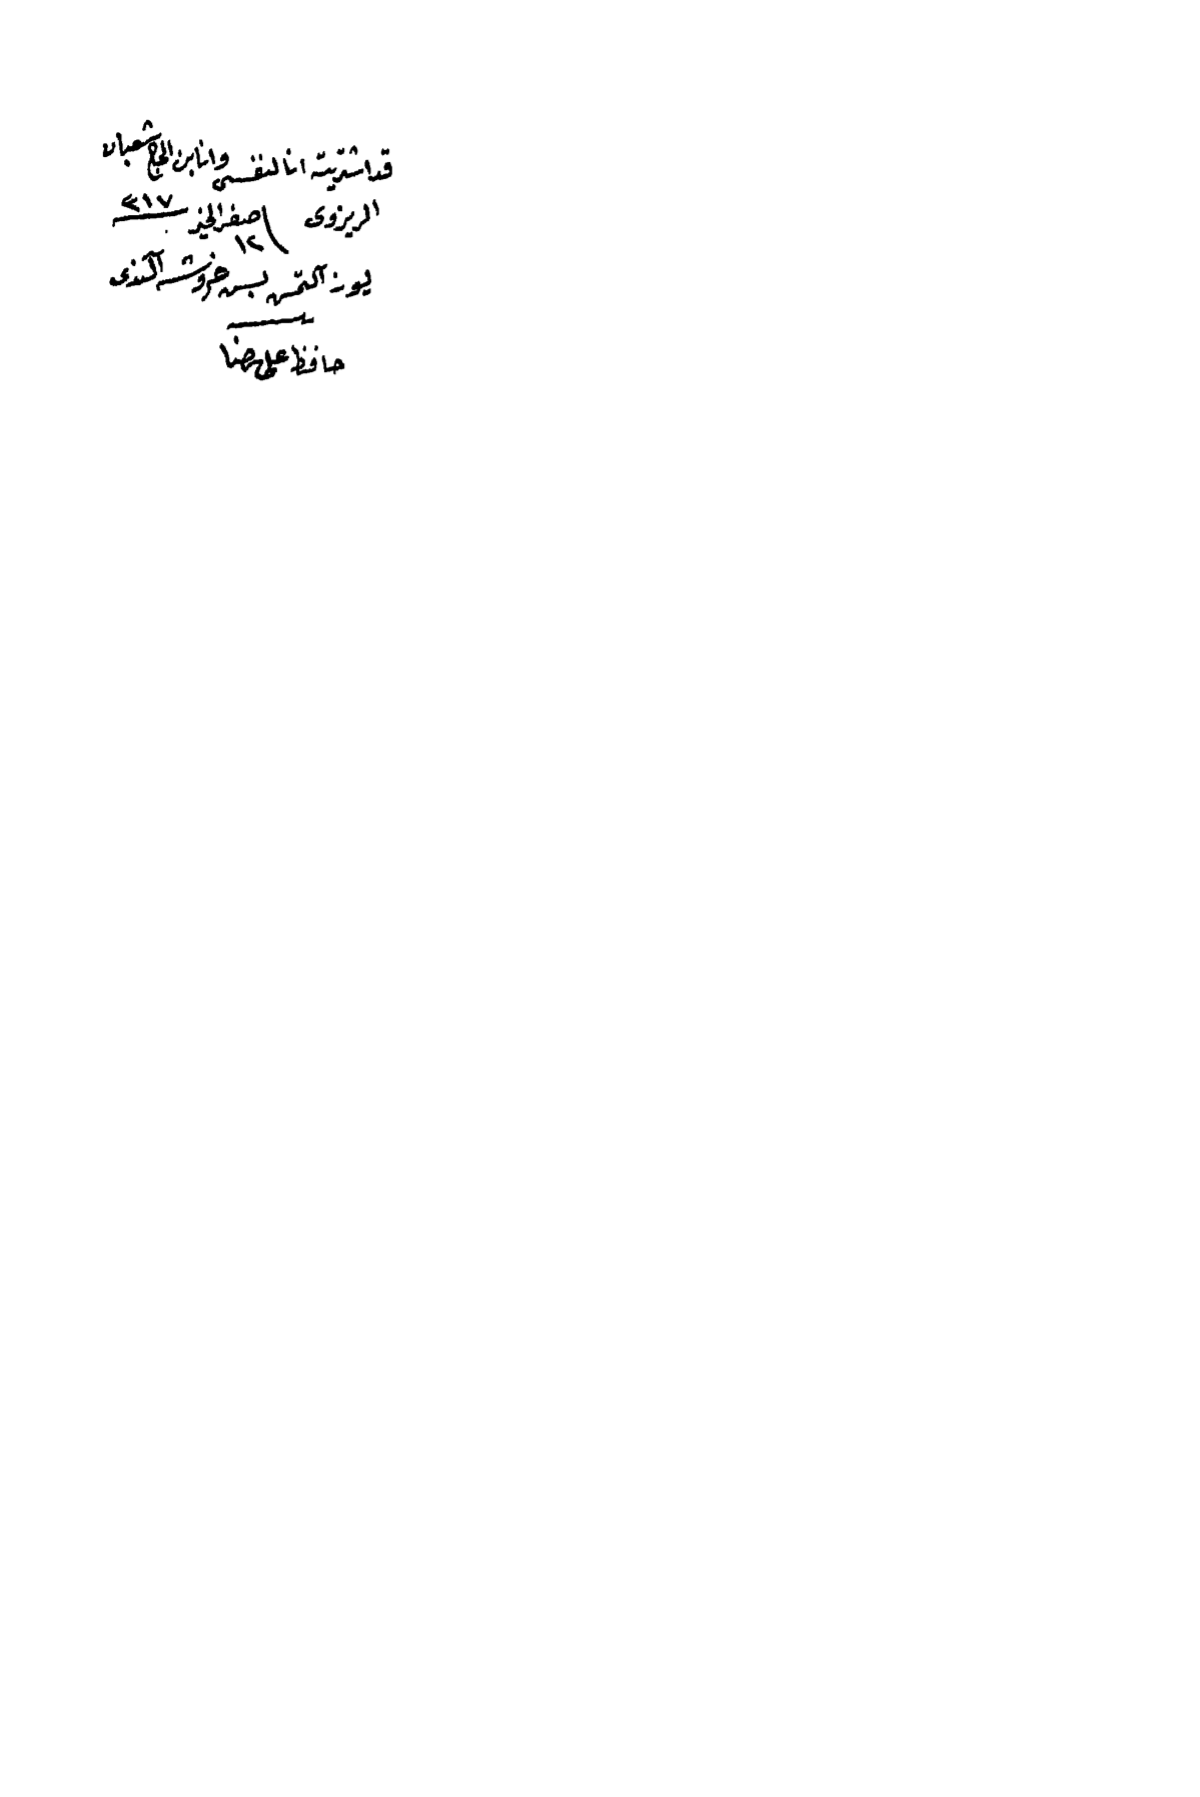 قد اشتريته انا لنفسى وانا ابن الحاج شعبان
الريزوى ١٢ صفر الخير ٣١٧
يوز آلتمش بش غروشه آلندى
حافظ على رضا